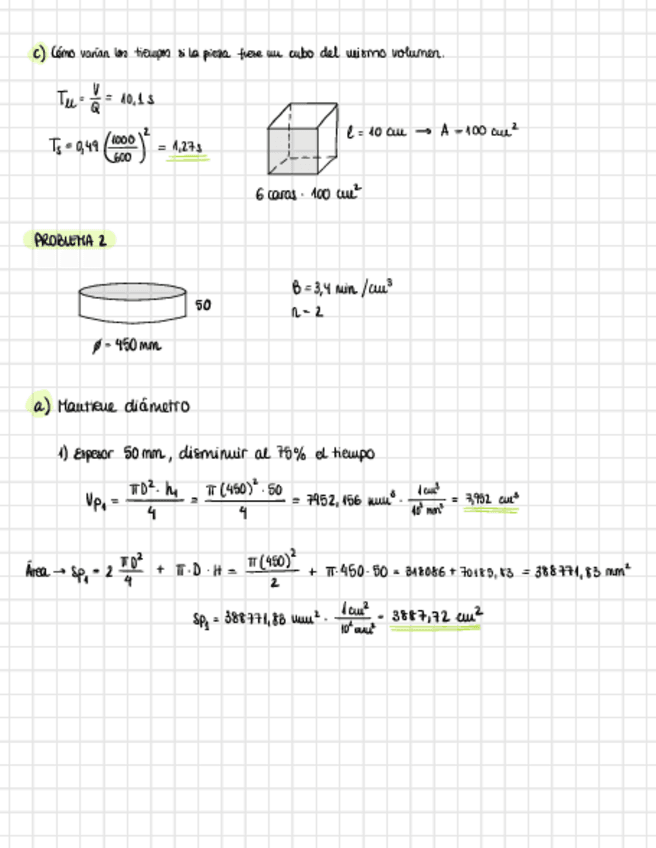 c) Cómo varían los tiempos si la pieza fuese un cubo del mismo volumen.
Tu = V/Q = 10,1 s
l = 10 cm → A = 100 cm²
Ts = 0,49 (1000/600)² = 1,27s
6 caras · 100 cm²
PROBLEMA 2
B = 3,4 min/cm³
50
n = 2
ø = 450 mm
a) Mantiene diámetro
1) Espesor 50 mm, disminuir al 75% el tiempo
Vp₁ = πD²·h₁/4 = π(450)²·50/4 = 7952,156 mm³ · 1cm³/10³ mm³ = 7,952 cm³
Área → Sp₁ = 2 πD²/4 + π·D·H = π(450)²/2 + π·450·50 = 318086 + 70185,83 = 388771,83 mm²
Sp₁ = 388771,83 mm² · 1cm²/10² mm² = 3887,72 cm²